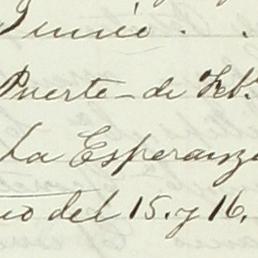 Puerte de Feb.
La Esperanz
io del 15. y 16.